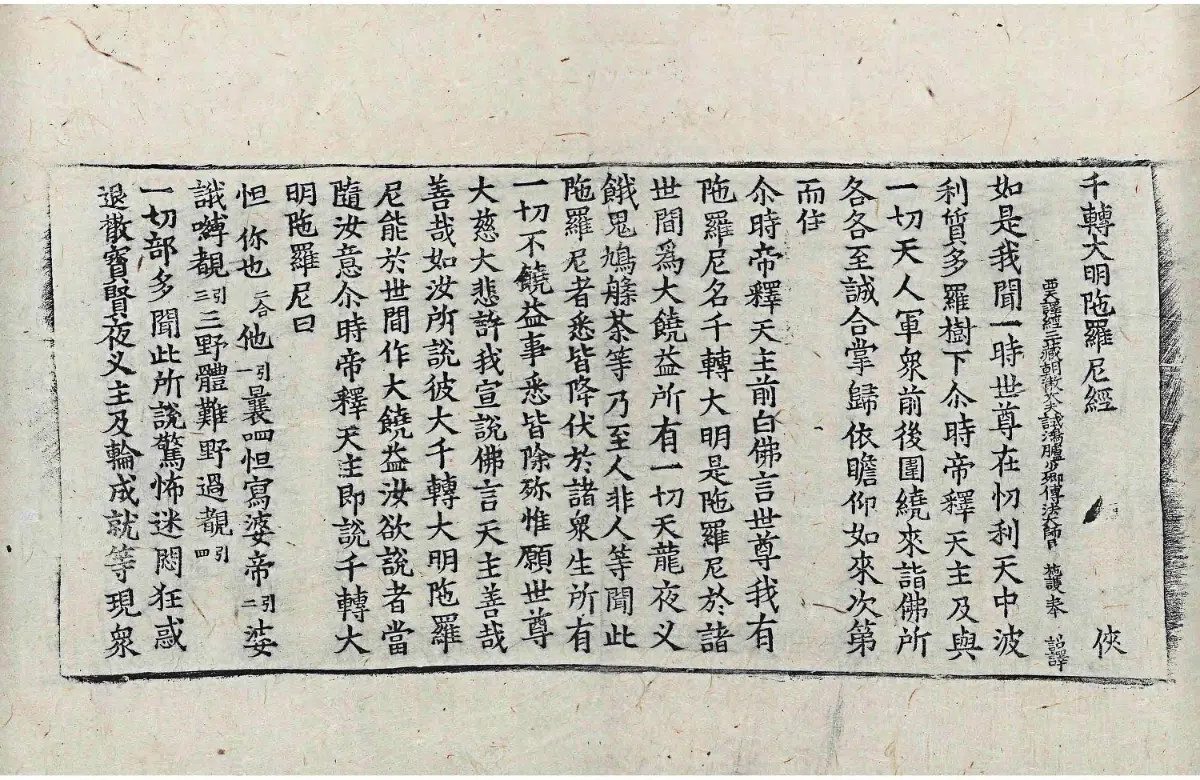 千轉大明陁羅尼經 俠
西天譯經三藏朝散大夫試鴻臚少卿傳法大師臣施護奉 詔譯
如是我聞一時世尊在忉利天中波
利質多羅樹下尒時帝釋天主及與
一切天人軍衆前後圍繞來詣佛所
各各至誠合掌歸依瞻仰如來次第
而住
尒時帝釋天主前白佛言世尊我有
陁羅尼名千轉大明是陁羅尼於諸
世間爲大饒益所有一切天龍夜叉
餓鬼鳩槃茶等乃至人非人等聞此
陁羅尼者悉皆降伏於諸衆生所有
一切不饒益事悉皆除殄惟願世尊
大慈大悲許我宣說佛言天主善哉
善哉如汝所說彼大千轉大明陁羅
尼能於世間作大饒益汝欲說者當
隨汝意尒時帝釋天主即說千轉大
明陁羅尼曰
怛你也二合他引一曩呬怛寫婆帝引二娑
誐嚩覩引三三野體難野過覩引四
一切部多聞此所說驚怖迷悶狂惑
退散寶賢夜叉主及輪成就等現衆